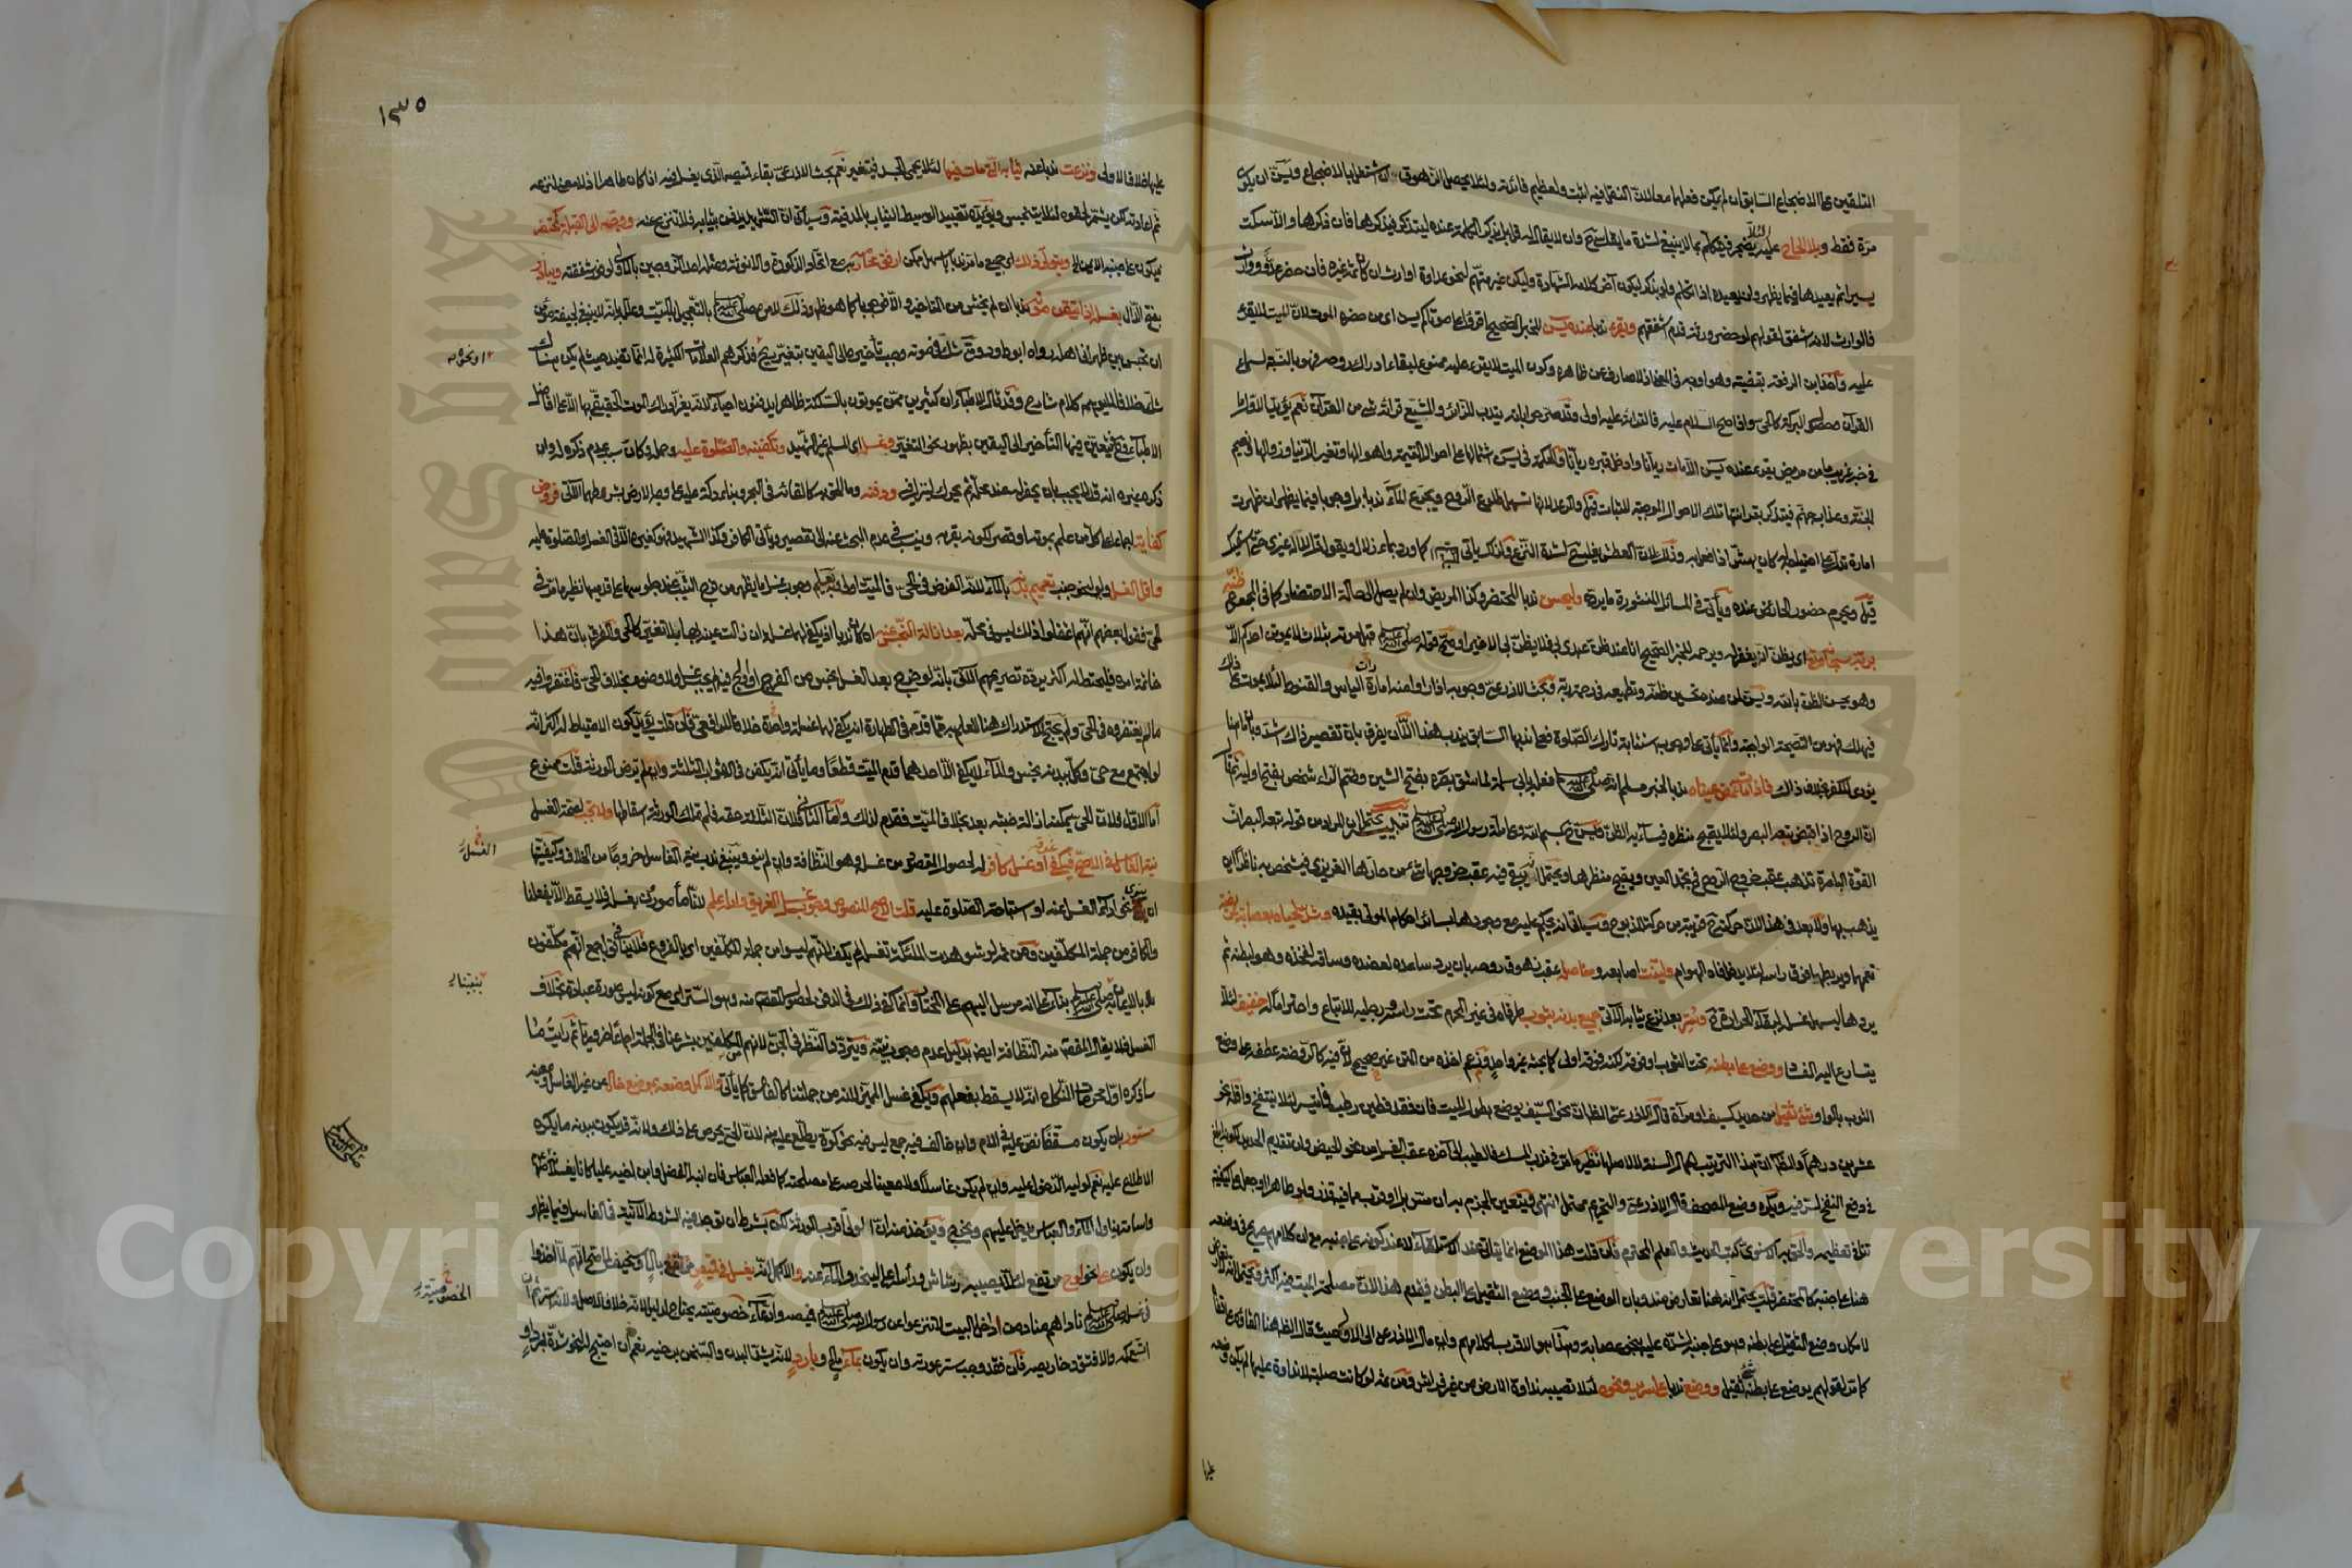 التلقين على الاضجاع السابق ان لم يكن فعلهما معا لان النقل فيه اثبت ولعظيم فائدته ولئلا يحصل الزهوق ان اشتغل بالاضجاع ويسن ان يكون
مرة فقط وبلا الحاح عليه لئلا يضجر فيتكلم بما لا ينبغي لشدة ما يقاسي ح وان لا يقال له قل بل يذكر الكلمة عنده ليتذكر فيذكرها فان ذكرها والا سكت
يسيرا ثم يعيدها فيما يظهر ولن يعيده اذا تكلم ولو بذكر ليكون آخر كلامه الشهادة وليكن غير متهم لنحو عداوة او ارث ان كان ثم غيره فان حضر عدو ووارث
فالوارث لانه اشفق لقولهم لو حضر ورثة قدم اشفقهم ويقرء ندبا عنده يس للخبر الصحيح اقرؤا على موتاكم يس اى من حضره الموت لان الميت لا يقرء
عليه وأخذ ابن الرفعة بقضيته وهو اوجه في المعنى اذ لا صارف عن ظاهره وكون الميت لا يقرء عليه ممنوع لبقاء ادراك روحه فهو بالنسبة لسماع
القرآن وحصول البركة كالحى واذا صح السلام عليه فالقراءة عليه اولى وقد صرحوا بانه يندب للزائر والمشيع قراءة شئ من القرآن نعم يؤيد الاول ما
في خبر غريب ما من مريض يقرء عنده يس الا مات ريانا وادخل قبره ريانا والحكمة في يس اشتمالها على احوال القيمة واهوالها وتغير الدنيا وزوالها ونعيم
الجنة وعذاب جهنم فيتذكر بقراءتها تلك الاحوال الموجبة للثبات قيل والرعد لانها تسهل طلوع الروح ويجرع الماء ندبا بل وجوبا فيما يظهر ان ظهرت
امارة تدل على احتياجه كان يهش اذا فعل به وذلك لان العطش يغلب ح لشدة النزع ولذلك يأتي الشيطان كما ورد بماء زلال ويقول قل لا اله غيرى حتى اسقيك
قيل ويحرم حضور الحائض عنده ويأتي في المسائل المنثورة ما يرده وليحسن ندبا المحتضر وكذا المريض وان لم يصل الى حالة الاحتضار كما في المجموع ظنه
بربه سبحانه وتعالى اى يظن انه يغفر له ويرحمه للخبر الصحيح انا عند ظن عبدى بى فلا يظن بى الا خيرا وصح قوله صلى الله عليه وسلم قبل موته بثلاث لا يموتن احدكم الا
وهو يحسن الظن بالله ويسن لمن عنده تحسين ظنه وتطميعه في رحمة ربه وبحث الاذرعى وجوبه اذا رأوا منه امارة اليأس والقنوط لئلا يموت على ذلك
فيهلك فهو من النصيحة الواجبة وانما يأتي على وجوب استتابة تارك الصلوة فعلى ندبها السابق يندب هذا الا ان يفرق بان تقصير ذاك اشد وبان ما هنا
يؤدى للكفر بخلاف ذاك فاذا مات غمض عيناه ندبا لخبر مسلم انه صلى الله عليه وسلم فعله بابى سلمة لما شق بصره بفتح الشين وضم الراء اى شخص بفتح اوليه ثم قال
ان الروح اذا قبض تبعه البصر ولئلا يقبح منظره فيساء به الظن ويسن ح بسم الله وعلى ملة رسول الله صلى الله عليه وسلم تنبيه يحتمل ان المراد من قوله تبعه البصر ان
القوة الباصرة تذهب عقب خروج الروح فح تجمد العين ويقبح منظرها ويحتمل انه يبقى فيه عقب خروجها شئ من حارها الغريزى فيشخص به ناظرا اين
يذهب بها ولا بعد في هذا لان حركته ح قريبة من حركة المذبوح وسيأتى انه يحكم عليه مع وجودها بسائر احكام الموتى بقيده وشد لحياه بعصابة عريضة
تعمهما ويربطها فوق رأسه لئلا يدخل فاه الهوام ولينت اصابعه ومفاصله عقب زهوق روحه بان يرد ساعده لعضده وساقه لفخذه وهو لبطنه ثم
يردها ليسهل غسله لبقاء الحرارة ح وستر بعد نزع ثيابه الآتي جميع بدنه بثوب طرفاه في غير المحرم تحت رأسه ورجليه للاتباع واحتراما له خفيف لئلا
يتسارع اليه الفساد ووضع على بطنه تحت الثوب او فوقه لكنه فوقه اولى كما بحثه غير واحد
الثوب بالواو شئ ثقيل من حديد كسيف او مرآة قال الاذرعى الظاهر ان نحو السيف يوضع بطول الميت فان فقد فطين رطب فما تيسر لئلا ينتفخ واقله نحو
عشرين درهما والظاهر ان هذا الترتيب
ويكره وضع المصحف قال الاذرعى والتحريم محتمل انتهى ويتعين الجزم به ان مس بل او قرب مما فيه قذر ولو طاهرا
تنافى تعظيمه والحق به الاسنوى كتب الحديث والعلم المحترم فان قلت هذا الوضع انما يتأتى عند الاستلقاء لا عند كونه على جنبه مع ان كلامهم صريح في وضعه
هنا على جنبه كالمحتضر قلت يحتمل انه هنا تعارض مندوبان الوضع على الجنب ووضع الثقيل على البطن فيقدم هذا لان مصلحة الميت فيه اكثر ويحتمل انه لا تعارض
لامكان وضع الثقيل على بطنه وهو على جنبه لشده عليه بنحو عصابة وهذا هو الاقرب لكلامهم وان مال الاذرعى الى الاول حيث قال الظاهر هنا القاؤه على قفاه
كما مر لقولهم يوضع على بطنه شئ ثقيل ووضع ندبا على سرير ونحوه لئلا تصيبه نداوة الارض ومن غير فراش ومن ثم لو كانت صلبة لا نداوة عليها لم يكن وضعه
عليها
١٣٥
عليها خلاف الاولى ونزعت ندبا عنه ثيابه التي مات فيها لئلا يحمى الجسد فيتغير نعم بحث الاذرعى بقاء قميصه الذى يغسل فيه اذا كان طاهرا اذ لا معنى لنزعه
ثم اعادته لكن يشمر لحقوه لئلا يتنجس ويؤيده تقييد الوسيط الثياب بالمدفئة وسيأتى ان الشهيد يدفن بثيابه فلا تنزع عنه ووجه الى القبلة كمحتضر
فيكون على جنبه الايمن الخ ويتولى ذلك اى جميع ما مر ندبا باسهل ممكن ارفق محارمه به مع اتحاد الذكورة والانوثة ومثله احد الزوجين بالاولى لوفور شفقته ويبادر
بفتح الدال بغسله اذا تيقن موته ندبا ان لم يخش من التأخير والا فوجوبا كما هو ظاهر وذلك لامره صلى الله عليه وسلم بالتعجيل بالميت وعلله بانه لا ينبغي لجيفة مؤمن
ان تحبس بين ظهرانى اهله رواه ابو داود ومتى شك في موته وجب تأخيره الى اليقين بتغير ريح او نحوه فذكرهم العلامات الكثيرة له انما تفيد حيث لم يكن هناك
شك خلافا لما يوهمه كلام شارح وقد قال الاطباء ان كثيرين ممن يموتون بالسكتة ظاهرا يدفنون احياء لانه يعز ادراك الموت الحقيقى بها الا على افاضل
الاطباء وح فيتعين فيها التأخير الى اليقين بظهور نحو التغير وغسله اى المسلم غير الشهيد وتكفينه والصلوة عليه وحمله وكان سبب عدم ذكره له وان
ذكره غيره انه قد لا يجب بان يحفر له عند محله ثم يحرك لينزل فيه ودفنه وما الحق به كالقائه في البحر وبناء دكة عليه على وجه الارض بشرطهما الآتى فروض
كفاية اجماعا على كل من علم بموته او قصر لكونه بقربه وينسب في عدم البحث عنه الى تقصير ويأتى الكافر وكذا الشهيد فهو كغيره الا في الغسل والصلوة عليه
واقل الغسل ولو لنحو جنب تعميم بدنه بالماء لانه الفرض في الحى فالميت اولى وبه يعلم وجوب غسل ما يظهر من فرج الثيب عند جلوسها على قدميها نظير ما مر في
الحى فقول بعضهم انهم اغفلوا ذلك ليس في محله بعد ازالة النجس عنه ان كان ندبا اذ يكفى لهما غسلة ان زالت عينه بها بلا تغير كالحى والفرق بان هذا
خاتمة امره فليحتط له اكثر يرده تصريحهم الآتى بانه لو خرج بعد الغسل نجس من الفرج او اولج فيه لم يجب غسل ولا وضوء بخلاف الحى فاغتفروا فيه
ما لم يغتفروه في الحى ولم يحتج للاستدراك هنا للعلم به مما قدمه في الطهارة انه يكفى لهما غسلة واحدة خلافا للرافعى فان قلت
لو اجتمع مع حى وكل ببدنه نجس والماء لا يكفى الا احدهما قدم الميت قطعا وما يأتى انه يكفن في الاثواب الثلثة وان لم ترض الورثة قلت ممنوع
اما الاول فلان الحى يمكنه ازالة خبثه بعد بخلاف الميت فقدم لذلك واما الثاني فلان الثلاثة حقه فلم تملك الورثة اسقاطها ولا تجب لصحة الغسل
نية الغاسل في الاصح فيكفى غرقه او غسل كافر له لحصول المقصود من غسله وهو النظافة وان لم ينو وينبغى ندب نية الغاسل خروجا من الخلاف وكيفيتها
ان ينوى نحو اداء الغسل عنه او استباحة الصلوة عليه قلت الصحيح المنصوص وجوب غسل الغريق والله اعلم لانا مأمورون بغسله فلا يسقط الا بفعلنا
والكافر من جملة المكلفين ومن ثم لو شوهدت الملئكة تغسله لم يكف لانهم ليسوا من جملة المكلفين اى بالفروع فلا ينافى قول جمع انهم مكلفون
بالايمان به صلى الله عليه وسلم بناء على انه مرسل اليهم على المختار وانما كفى ذلك في الدفن لحصول المقصود منه وهو الستر اى مع كونه ليس صورة عبادة بخلاف
الغسل فلا يقال المقصود منه النظافة ايضا بدليل عدم وجوب نيته ويتردد النظر في الجن لانهم من المكلفين بشرعنا في الجملة
سأذكره اول محرمات النكاح انه لا يسقط بفعلهم ويكفى غسل المميز لانه من جملتنا كالفاسق كما يأتى والاكمل وضعه بموضع خال من غير الغاسل ومعينه
مستور بان يكون مسقفا نص عليه في الام وان خالف فيه جمع ليس فيه نحو كوة يطلع عليه منها لان الحى يحرص على ذلك ولانه قد يكون ببدنه ما يكره
الاطلاع عليه نعم لوليه الدخول عليه وان لم يكن غاسلا ولا معينا لحرصه على مصلحته كما فعل العباس فان ابنه الفضل وابن اخيه عليا كانا يغسلانه
واسامة يناول الماء والعباس يدخل عليهم ويخرج ويؤخذ منه ان الولى اقرب الورثة لكن بشرط ان توجد فيه الشروط الآتية في الغاسل فيما يظهر
وان يكون على نحو لوح مرتفع لئلا يصيبه رشاش ورأسه اعلى لينحدر الماء عنه والاكمل انه يغسل في قميص
غسله صلى الله عليه وسلم ناداهم مناد من داخل البيت لا تنزعوا عن رسول الله صلى الله عليه وسلم قميصه وادعاء خصوصيته يحتاج لدليل لانه خلاف الاصل
فان فقد وجب ستر عورته وان يكون بماء مالح وبارد لانه يشد البدن والسخن يرخيه نعم ان احتيج اليه لنحو شدة برد او